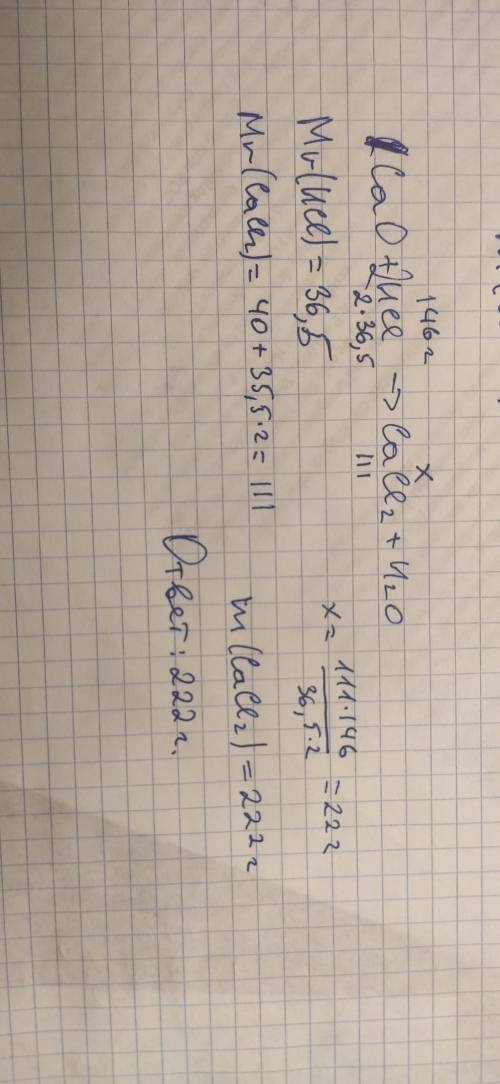 146г x
CaO + 2HCl → CaCl₂ + H₂O
2·36,5 111
Mr(HCl) = 36,5
Mr(CaCl₂) = 40 + 35,5·2 = 111
x = 111·146 / 36,5·2 = 222
m(CaCl₂) = 222г
Ответ: 222г.